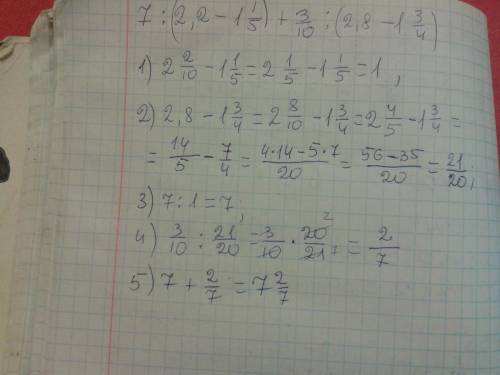 7 : (2,2 − 1 1/5) + 3/10 : (2,8 − 1 3/4)
1) 2 2/10 − 1 1/5 = 2 1/5 − 1 1/5 = 1 ,
2) 2,8 − 1 3/4 = 2 8/10 − 1 3/4 = 2 4/5 − 1 3/4 =
= 14/5 − 7/4 = (4·14 − 5·7)/20 = (56 − 35)/20 = 21/20 ;
3) 7 : 1 = 7 ;
4) 3/10 : 21/20 = 3/10 · 20/21 = 2/7
5) 7 + 2/7 = 7 2/7